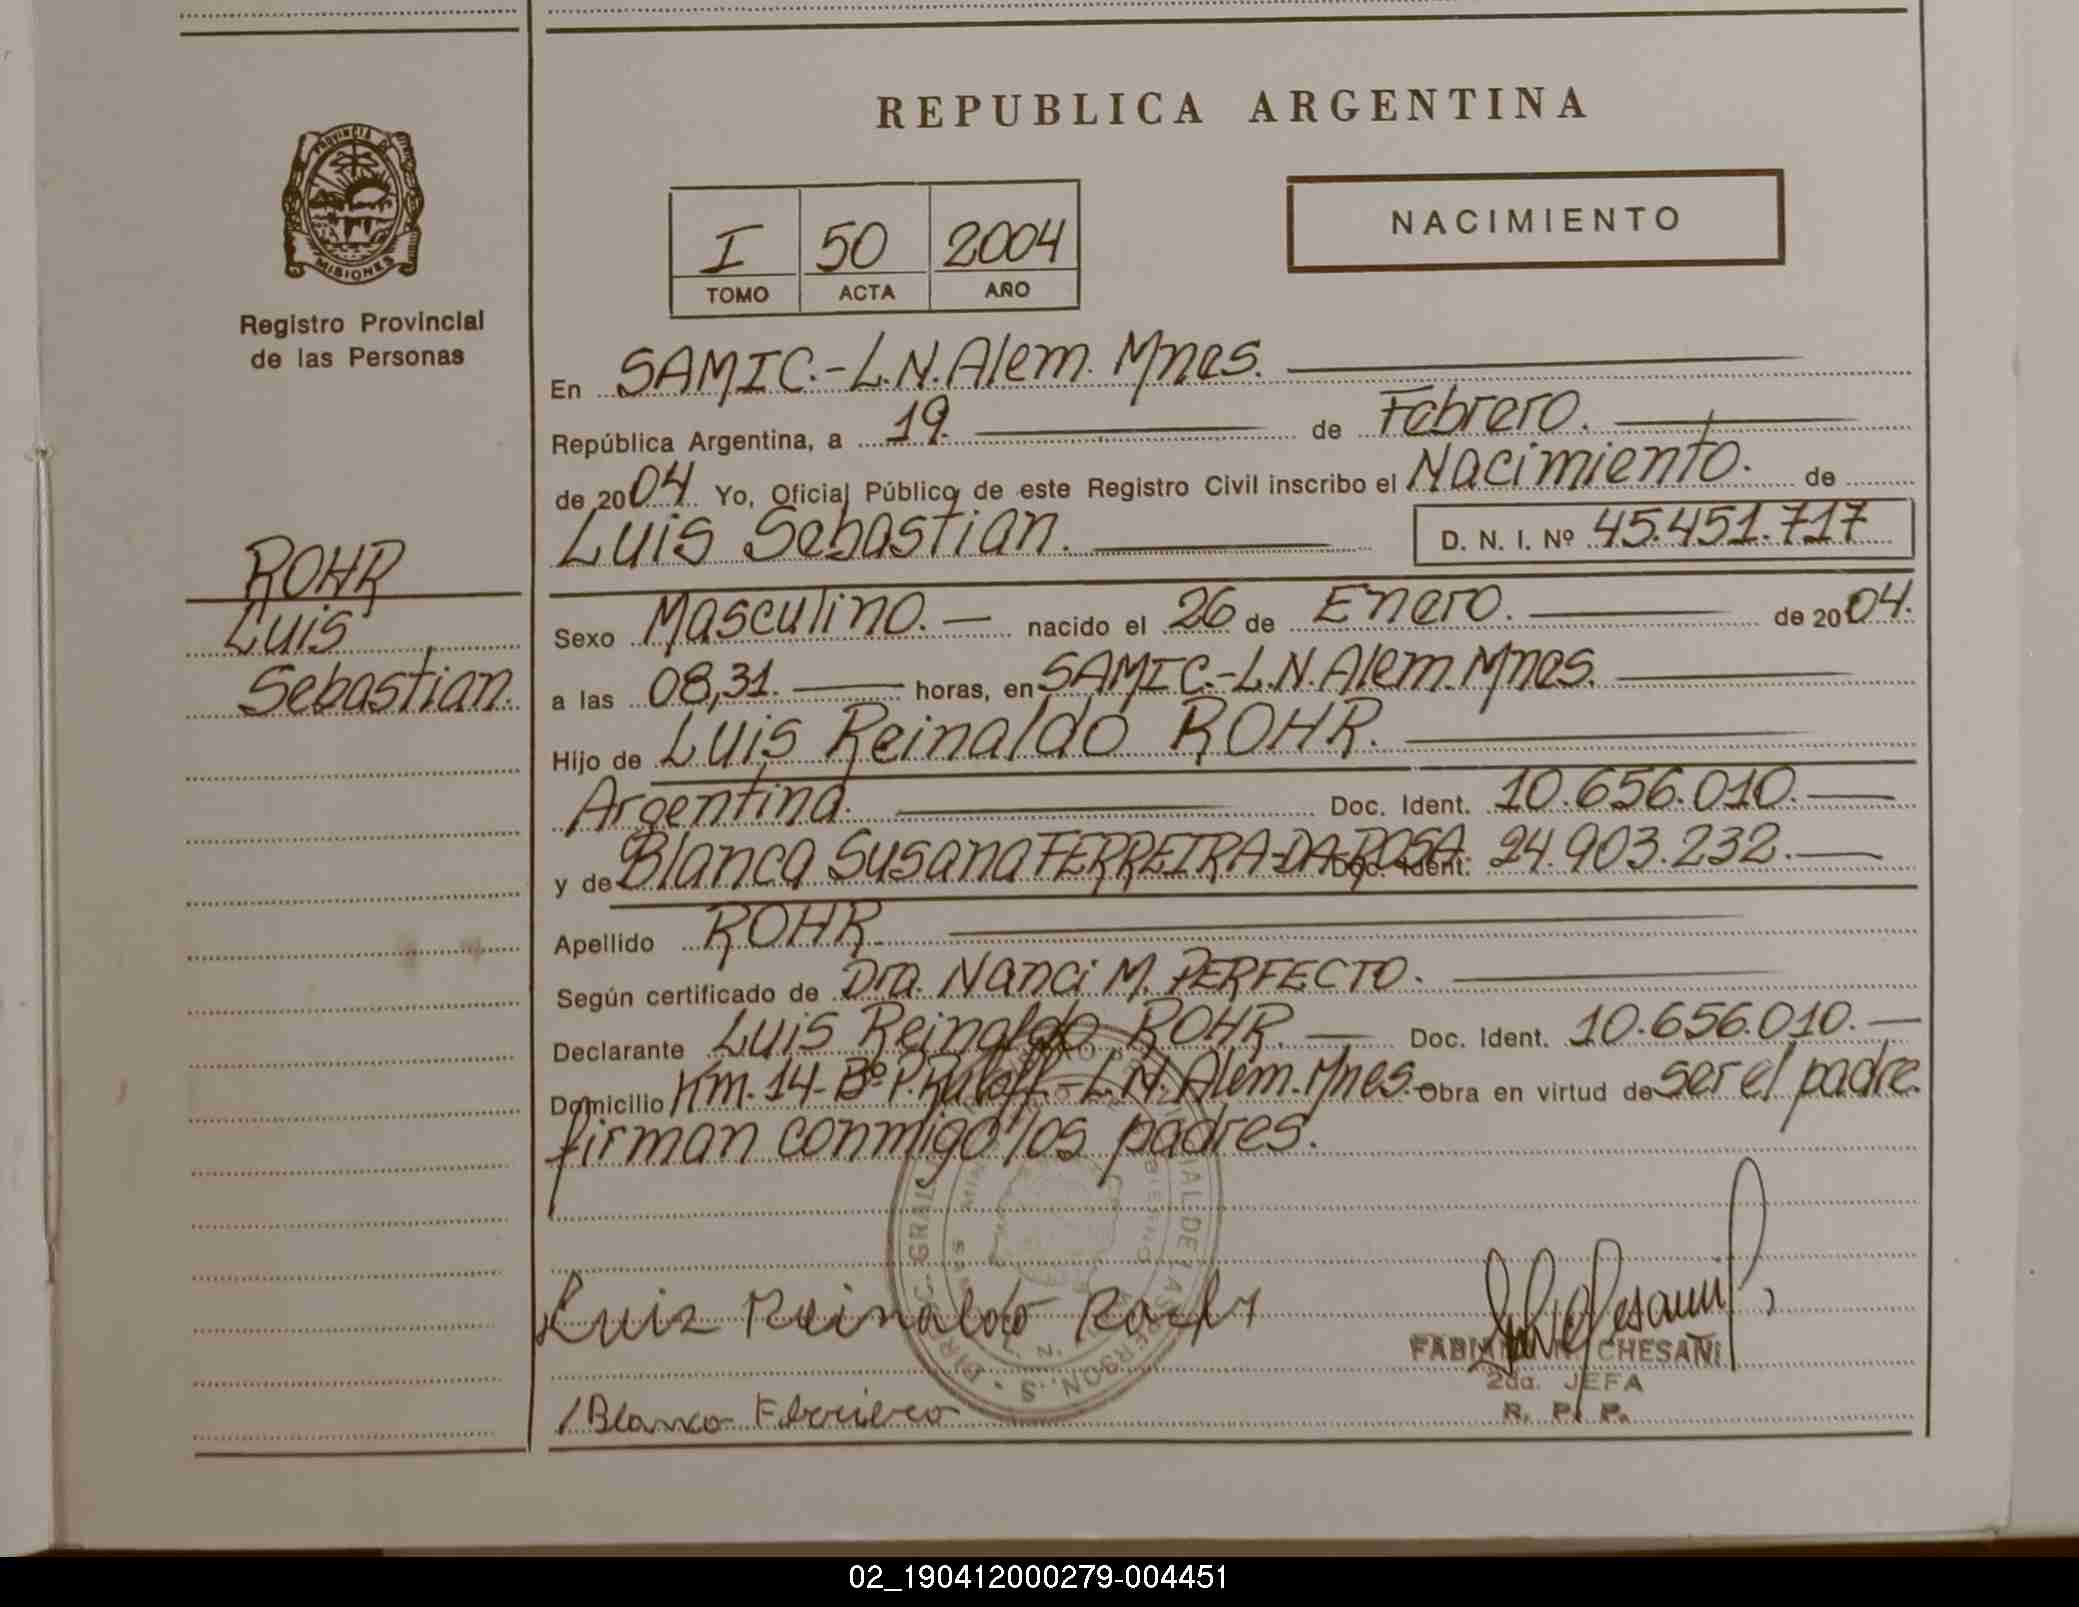 REPUBLICA ARGENTINA
PROVINCIA DE
MISIONES
Registro Provincial
de las Personas
I 50 2004
TOMO ACTA AÑO
NACIMIENTO
En SAMIC.-L.N.Alem. Mnes.
República Argentina, a 19. de Febrero.
de 2004 Yo, Oficial Público de este Registro Civil inscribo el Nacimiento. de
Luis Sebastian. D. N. I. Nº 45.451.717
ROHR
Luis
Sebastian.
Sexo Masculino. nacido el 26 de Enero. de 2004.
a las 08,31. horas, en SAMIC.-L.N.Alem.Mnes.
Hijo de Luis Reinaldo ROHR.
Argentina. Doc. Ident. 10.656.010.
y de Blanca Susana FERREIRA-DA-ROSA. Doc. Ident. 24.903.232.
Apellido ROHR
Según certificado de Dra. Nanci M. PERFECTO.
Declarante Luis Reinaldo ROHR. Doc. Ident. 10.656.010.
Domicilio Km.14-Bº P. -L.N.Alem.Mnes. Obra en virtud de ser el padre.
firman conmigo los padres.
Luis Reinaldo
Blanca
CHESANI
2da. JEFA
R. P. P.
02_190412000279-004451